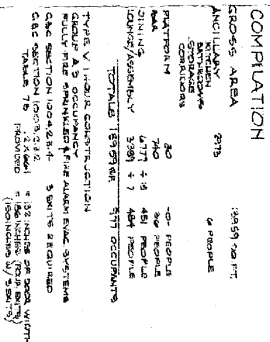 COMPILATION
GROSS AREA 13959 SQ FT.
ANCILLARY 2973 6 PEOPLE
KITCHEN
BATHROOMS
STORAGE
CORRIDORS
PLATFORM 80 -0- PEOPLE
BAR 740 36 PEOPLE
DINING 6777 ÷ 15 451 PEOPLE
LOUNGE/ASSEMBLY 3389 ÷ 7 484 PEOPLE
TOTALS 13959 SF 977 OCCUPANTS
TYPE V 1 HOUR CONSTRUCTION
GROUP A3 OCCUPANCY
FULLY FIRE SPRINKLED & FIRE ALARM EVAC SYSTEMS
CBC SECTION 1004.2.3.4 3 EXITS REQUIRED
CBC SECTION 1003.2.3.2
TABLE 7B = 132 INCHES OF DOOR WIDTH
PROVIDED = 186 INCHES (FOUR EXITS)
(150 INCHES W/ 3 EXITS)